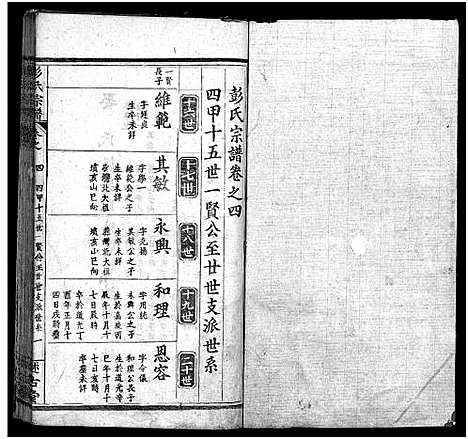 彭氏宗譜卷之四
四甲十五世一賢公至廿世支派世系
十六世
十七世
十八世
十九世
二十世
一賢長子
維範
字經良
生卒未詳
其敏
字學一
維範公之子
生卒未詳
葬灣北大祖
墳亥山巳向
永興
字克揚
其敏公之子
生卒未詳
葬灣北大祖
墳亥山巳向
和理
字用統
永興公之子
生於嘉慶丙
辰年十月十
七日辰時
卒於道光丁
酉年正月十
四日戌時
恩容
字令儀
和理公長子
生於道光
巳年十月十
七日亥時
卒葬未詳
彭氏宗譜
卷之四
四甲十五世一賢公至廿世支派世系
一
述古堂